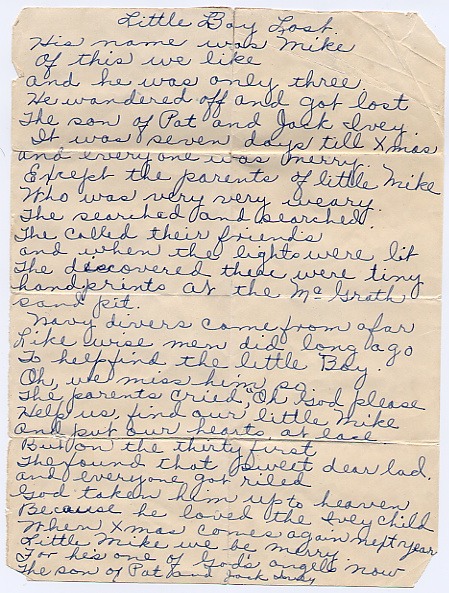 Little Boy Lost.
His name was Mike
Of this we like
and he was only three
He wandered off and got lost
The son of Pat and Jack Ivey.
It was seven days till Xmas
and everyone was merry.
Except the parents of little Mike
Who was very very weary.
The searched and searched.
The called their friends
and when the lights were lit
The discovered there were tiny
handprints at the McGrath
sand pit.
Navy divers came from afar
Like wise men did long ago
To help find the little Boy.
Oh, we miss him so
The parents cried, Oh God please
Help us, find our little Mike
And put our hearts, at ease
But on the thirty first
They found that sweet dear lad.
and everyone got riled
God taken him up to heaven
Because he loved the Ivey child
When Xmas comes again next year
Little Mike we be merry.
For his one of God's angels now
The son of Pat and Jack Ivey